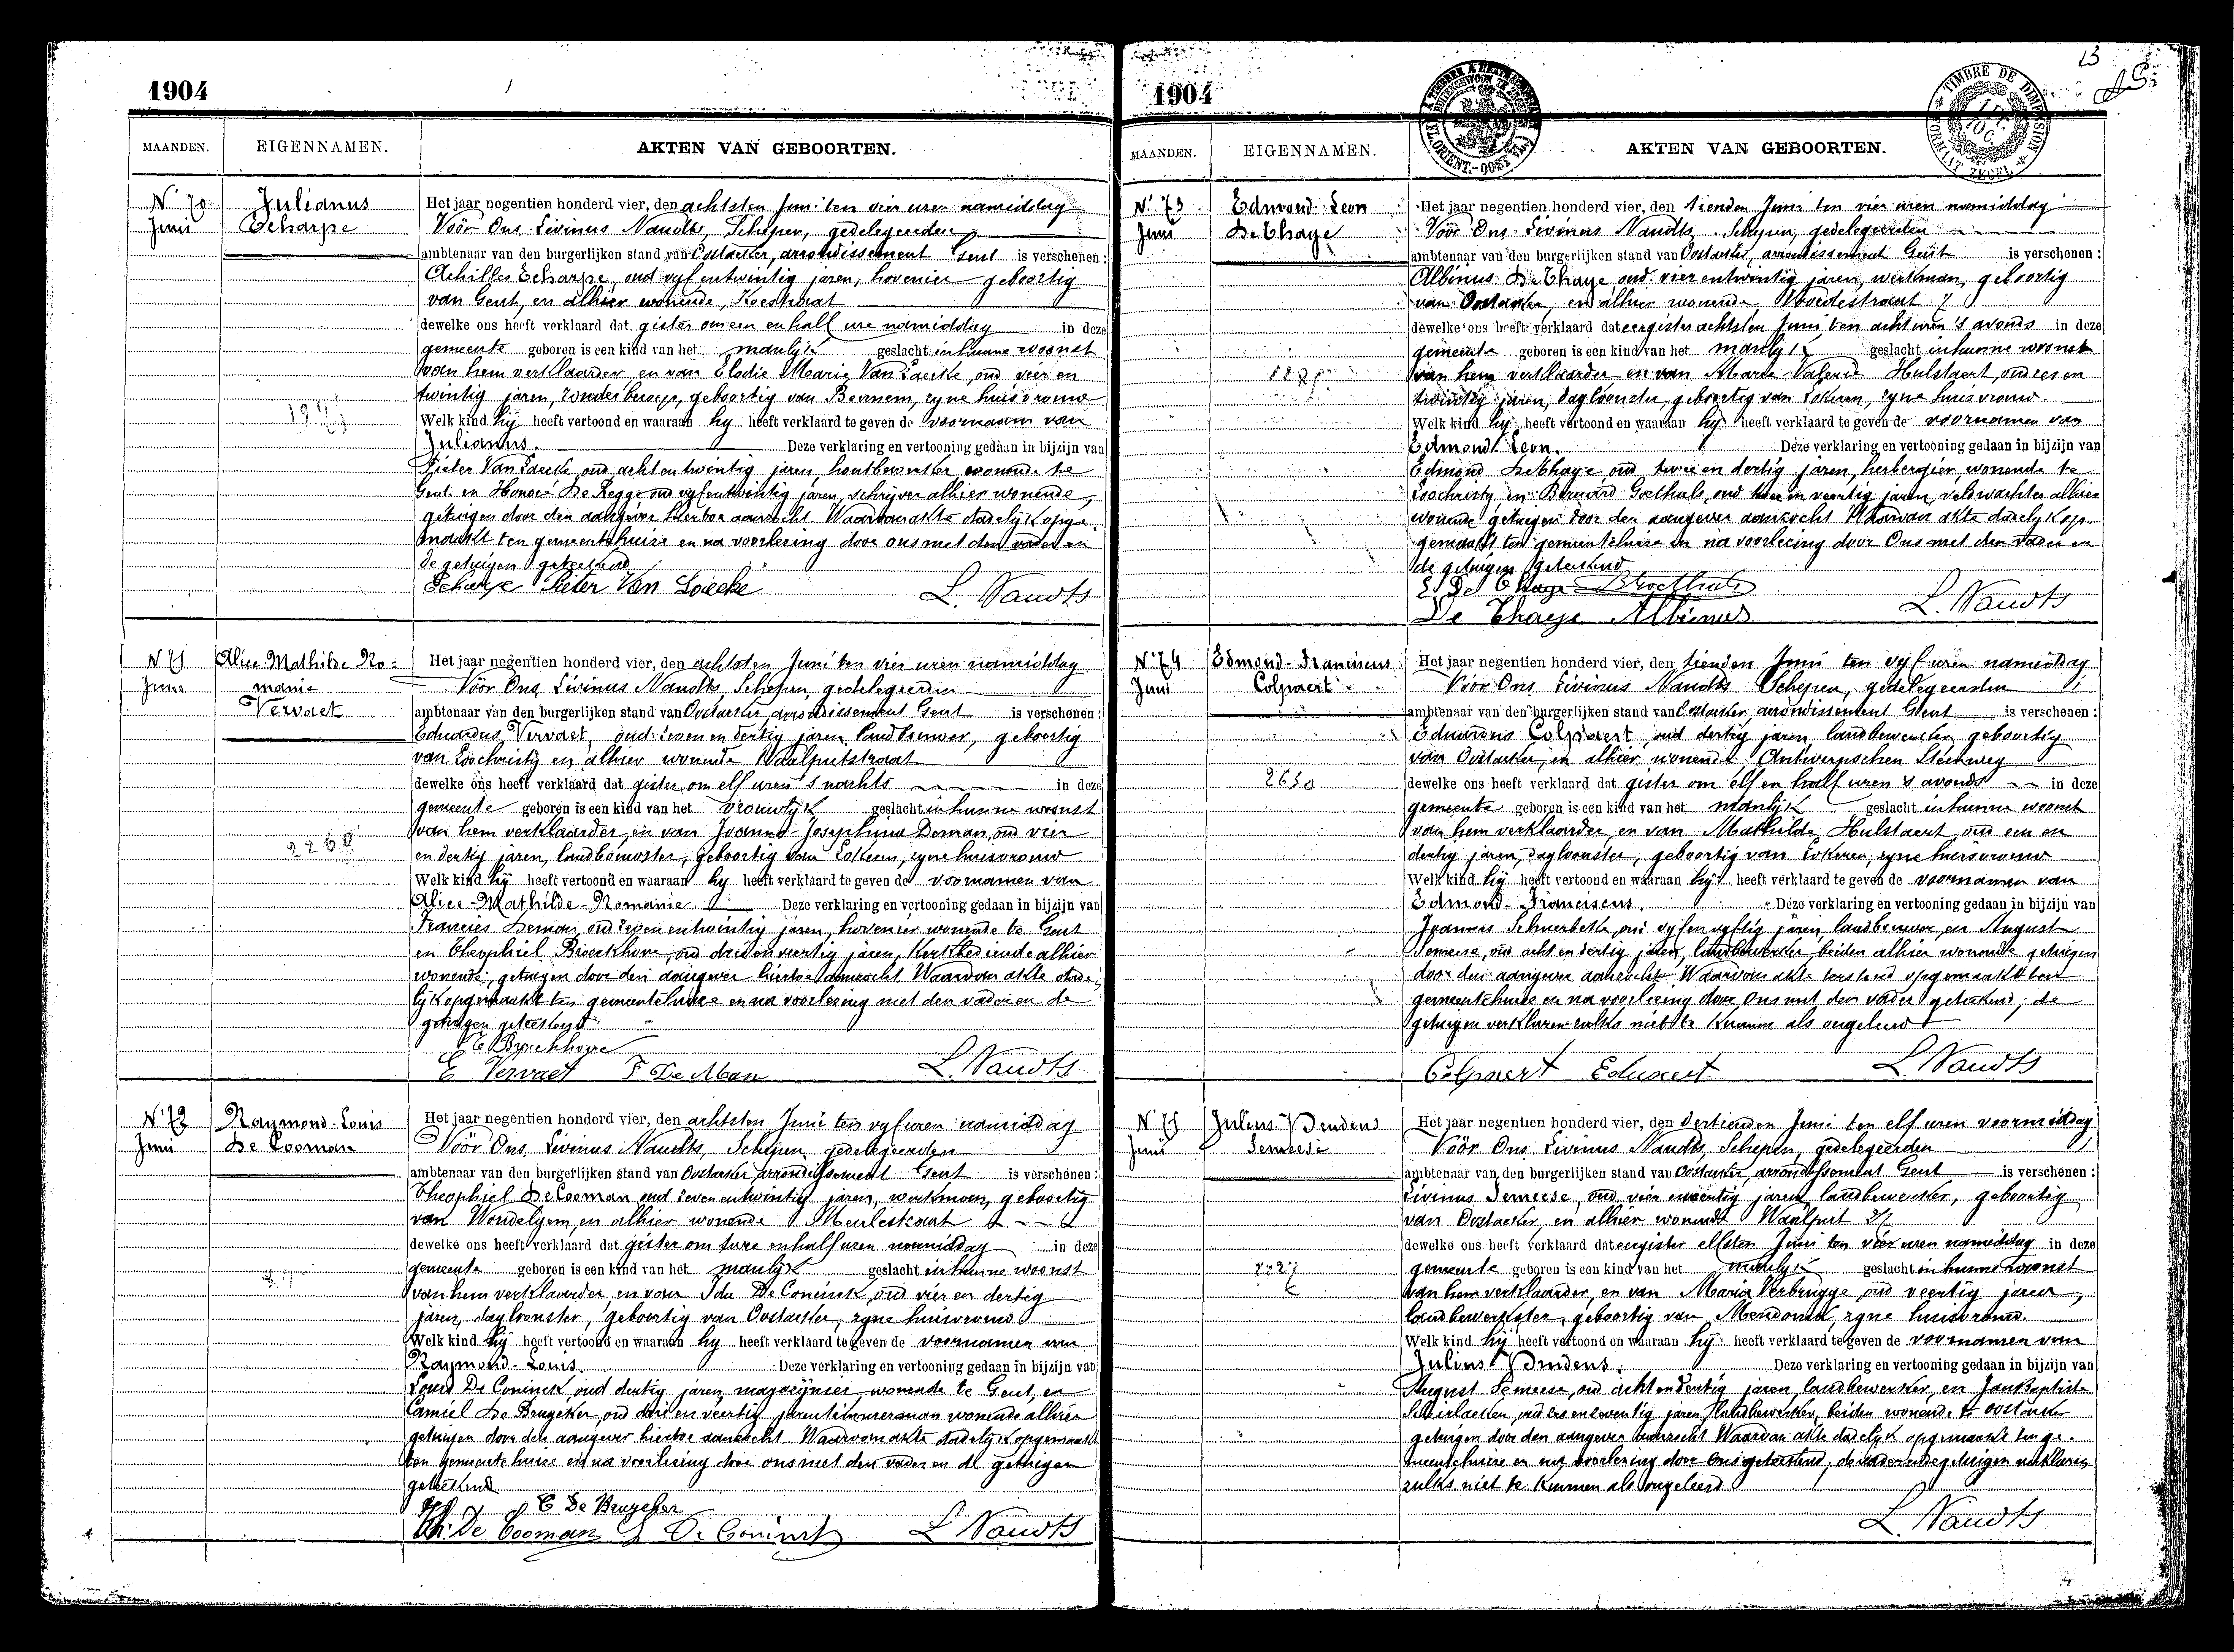 1904
MAANDEN. EIGENNAMEN. AKTEN VAN GEBOORTEN.
N° 70 Juni
Julianus Echarpe
Het jaar negentien honderd vier, den achtsten Juni ten vier uren namiddag
Vóór Ons Livinus Naudts, Schepen, gedelegeerden
ambtenaar van den burgerlijken stand van Oostacker, arrondissement Gent is verschenen :
Achilles Echarpe, oud vyf entwintig jaren, hovenier geboortig
van Gent, en alhier wonende,
dewelke ons heeft verklaard dat gister om een en half ure namiddag in deze
gemeente geboren is een kind van het manlyk geslacht in hunne woonst
van hem verklaarder, en van Elodie Maria Van Laecke, oud vier en
twintig jaren, zonder beroep, geboortig van Beernem, zyne huisvrouw
Welk kind hy heeft vertoond en waaraan hy heeft verklaard te geven de voornaam van
Julianus. Deze verklaring en vertooning gedaan in bijzijn van
Pieter Van Laecke, oud acht entwintig jaren, houtbewerker wonende te
Gent en Honoré De Regge oud vyfentwintig jaren, schrijver alhier wonende,
getuigen door den aangever hiertoe aanzocht. Waarvan akte dadelyk opge-
maakt ten gemeentehuize en na voorlezing door ons met den vader en
de getuigen geteekend
Echarpe Pieter Van Laecke L. Naudts
N° 71 Juni
Alice-Mathilde Ro-
manie
Vervaet
Het jaar negentien honderd vier, den achtsten Juni ten vier uren namiddag
Vóór Ons, Livinus Naudts, Schepen, gedelegeerden
ambtenaar van den burgerlijken stand van Oostacker, arrondissement Gent is verschenen :
Eduardus Vervaet, oud zeven en dertig jaren landbouwer, geboortig
van Loochristy en alhier wonende Waalputstraat
dewelke ons heeft verklaard dat gister om elf uren 's nachts in deze
gemeente geboren is een kind van het vrouwlyk geslacht in hunne woonst
van hem verklaarder, en van Joanna-Josephina Deman, oud vier
en dertig jaren, landbouwster, geboortig van Lokeren, zyne huisvrouw
Welk kind hy heeft vertoond en waaraan hy heeft verklaard te geven de voornamen van
Alice-Mathilde-Romanie Deze verklaring en vertooning gedaan in bijzijn van
Francies Deman, oud zeven entwintig jaren, hovenier wonende te Gent
en Theophiel Broeckhove, oud drie en veertig jaren, kerkbediende alhier
wonende, getuigen door den aangever hiertoe aanzocht. Waarvan akte dade-
lijk opgemaakt ten gemeentehuize en na voorlezing met den vader en de
getuigen geteekend
E Vervaet F De Man L. Naudts
N° 72 Juni
Raymond-Louis
De Cooman
Het jaar negentien honderd vier, den achtsten Juni ten vyf uren namiddag
Vóór Ons, Livinus Naudts, Schepen, gedelegeerden
ambtenaar van den burgerlijken stand van Oostacker, arrondissement Gent is verschenen :
Theophiel De Cooman oud zeven entwintig jaren, werkman, geboortig
van Wondelgem, en alhier wonende Meulestraat
dewelke ons heeft verklaard dat gister om twee en half uren namiddag in deze
gemeente geboren is een kind van het manlyk geslacht in hunne woonst
van hem verklaarder, en van Ida De Coninck, oud vier en dertig
jaren, dagloonster, geboortig van Oostacker, zyne huisvrouw
Welk kind hy heeft vertoond en waaraan hy heeft verklaard te geven de voornamen van
Raymond-Louis Deze verklaring en vertooning gedaan in bijzijn van
Louis De Coninck, oud dertig jaren, magazijnier, wonende te Gent, en
Camiel De Brugeker, oud drie en veertig jaren wonende alhier
getuigen door den aangever hiertoe aanzocht. Waarvan akte dadelyk opgemaakt
ten gemeentehuize en na voorlezing door ons met den vader en de getuigen
geteekend
C De Brugeker
Th. De Cooman L De Coninck L Naudts
13
1904
TIMBRE DE DIMENSION
MAANDEN. EIGENNAMEN. AKTEN VAN GEBOORTEN.
N° 73 Juni
Edmond Leon
De Thaye
Het jaar negentien honderd vier, den tienden Juni ten vier uren namiddag
Vóór Ons Livinus Naudts, Schepen, gedelegeerden
ambtenaar van den burgerlijken stand van Oostacker, arrondissement Gent is verschenen :
Albinus De Thaye oud vier entwintig jaren, werkman, geboortig
van Oostacker, en alhier wonende
dewelke ons heeft verklaard dat eergister achtsten Juni ten acht uren 's avonds in deze
gemeente geboren is een kind van het manlyk geslacht in hunne woonst
van hem verklaarder, en van Maria Valerie Hulstaert, oud zes en
twintig jaren, dagloonster, geboortig van Lokeren, zyne huisvrouw
Welk kind hy heeft vertoond en waaraan hy heeft verklaard te geven de voornamen van
Edmond Leon. Deze verklaring en vertooning gedaan in bijzijn van
Edmond De Thaye oud twee en dertig jaren, herbergier, wonende te
Loochristy en Bernard Goethals, oud twee en veertig jaren, veldwachter alhier
wonende getuigen door den aangever aanzocht. Waarvan akte dadelyk op-
gemaakt ten gemeentehuize en na voorlezing door Ons met den vader en
de getuigen geteekend
E. De Thaye B Goethals
De Thaeye Albinus L. Naudts
N° 74 Juni
Edmond-Franciscus
Colpaert
2630
Het jaar negentien honderd vier, den tienden Juni ten vyf uren namiddag
Vóór Ons Livinus Naudts Schepen, gedelegeerden
ambtenaar van den burgerlijken stand van Oostacker arrondissement Gent is verschenen :
Eduardus Colpaert, oud dertig jaren, landbewerker, geboortig
van Oostacker, en alhier wonende Antwerpschen Steenweg
dewelke ons heeft verklaard dat gister om elf en half uren 's avonds in deze
gemeente geboren is een kind van het manlyk geslacht in hunne woonst
van hem verklaarder, en van Mathilde Hulstaert oud een en
dertig jaren, dagloonster, geboortig van Lokeren, zyne huisvrouw
Welk kind hy heeft vertoond en waaraan hy heeft verklaard te geven de voornamen van
Edmond-Franciscus. Deze verklaring en vertooning gedaan in bijzijn van
Joannes oud vyf en vyftig jaren, landbouwer, en August
Semeese, oud acht en dertig jaren, landbewerker beiden alhier wonende getuigen
door den aangever aanzocht. Waarvan akte terstond opgemaakt ten
gemeentehuize en na voorlezing door Ons met den vader geteekend; de
getuigen verklaren zulks niet te kunnen als ongeleerd
Colpaert Eduaert L. Naudts
N° 75 Juni
Julius Prudens
Semeese
2227
Het jaar negentien honderd vier, den dertienden Juni ten elf uren voormiddag
Vóór Ons Livinus Naudts, Schepen, gedelegeerden
ambtenaar van den burgerlijken stand van Oostacker, arrondissement Gent is verschenen :
Livinus Semeese, oud vier en veertig jaren, landbewerker, geboortig
van Oostacker, en alhier wonende Waalput
dewelke ons heeft verklaard dat eergister elfsten Juni ten vier uren namiddag in deze
gemeente geboren is een kind van het manlyk geslacht in hunne woonst
van hem verklaarder, en van Maria Verbrugge oud veertig jaren,
landbewerkster, geboortig van Mendonk, zyne huisvrouw.
Welk kind hy heeft vertoond en waaraan hy heeft verklaard te geven de voornamen van
Julius Prudens. Deze verklaring en vertooning gedaan in bijzijn van
August Semeese, oud acht en dertig jaren, landbewerker, en Jan Baptiste
oud zes en zeventig jaren, landbewerker, beiden wonende te Oostacker
getuigen door den aangever aanzocht. Waarvan akte dadelyk opgemaakt ten ge-
meentehuize en na voorlezing door Ons geteekend; de vader en de getuigen verklaren
zulks niet te kunnen als ongeleerd
L. Naudts